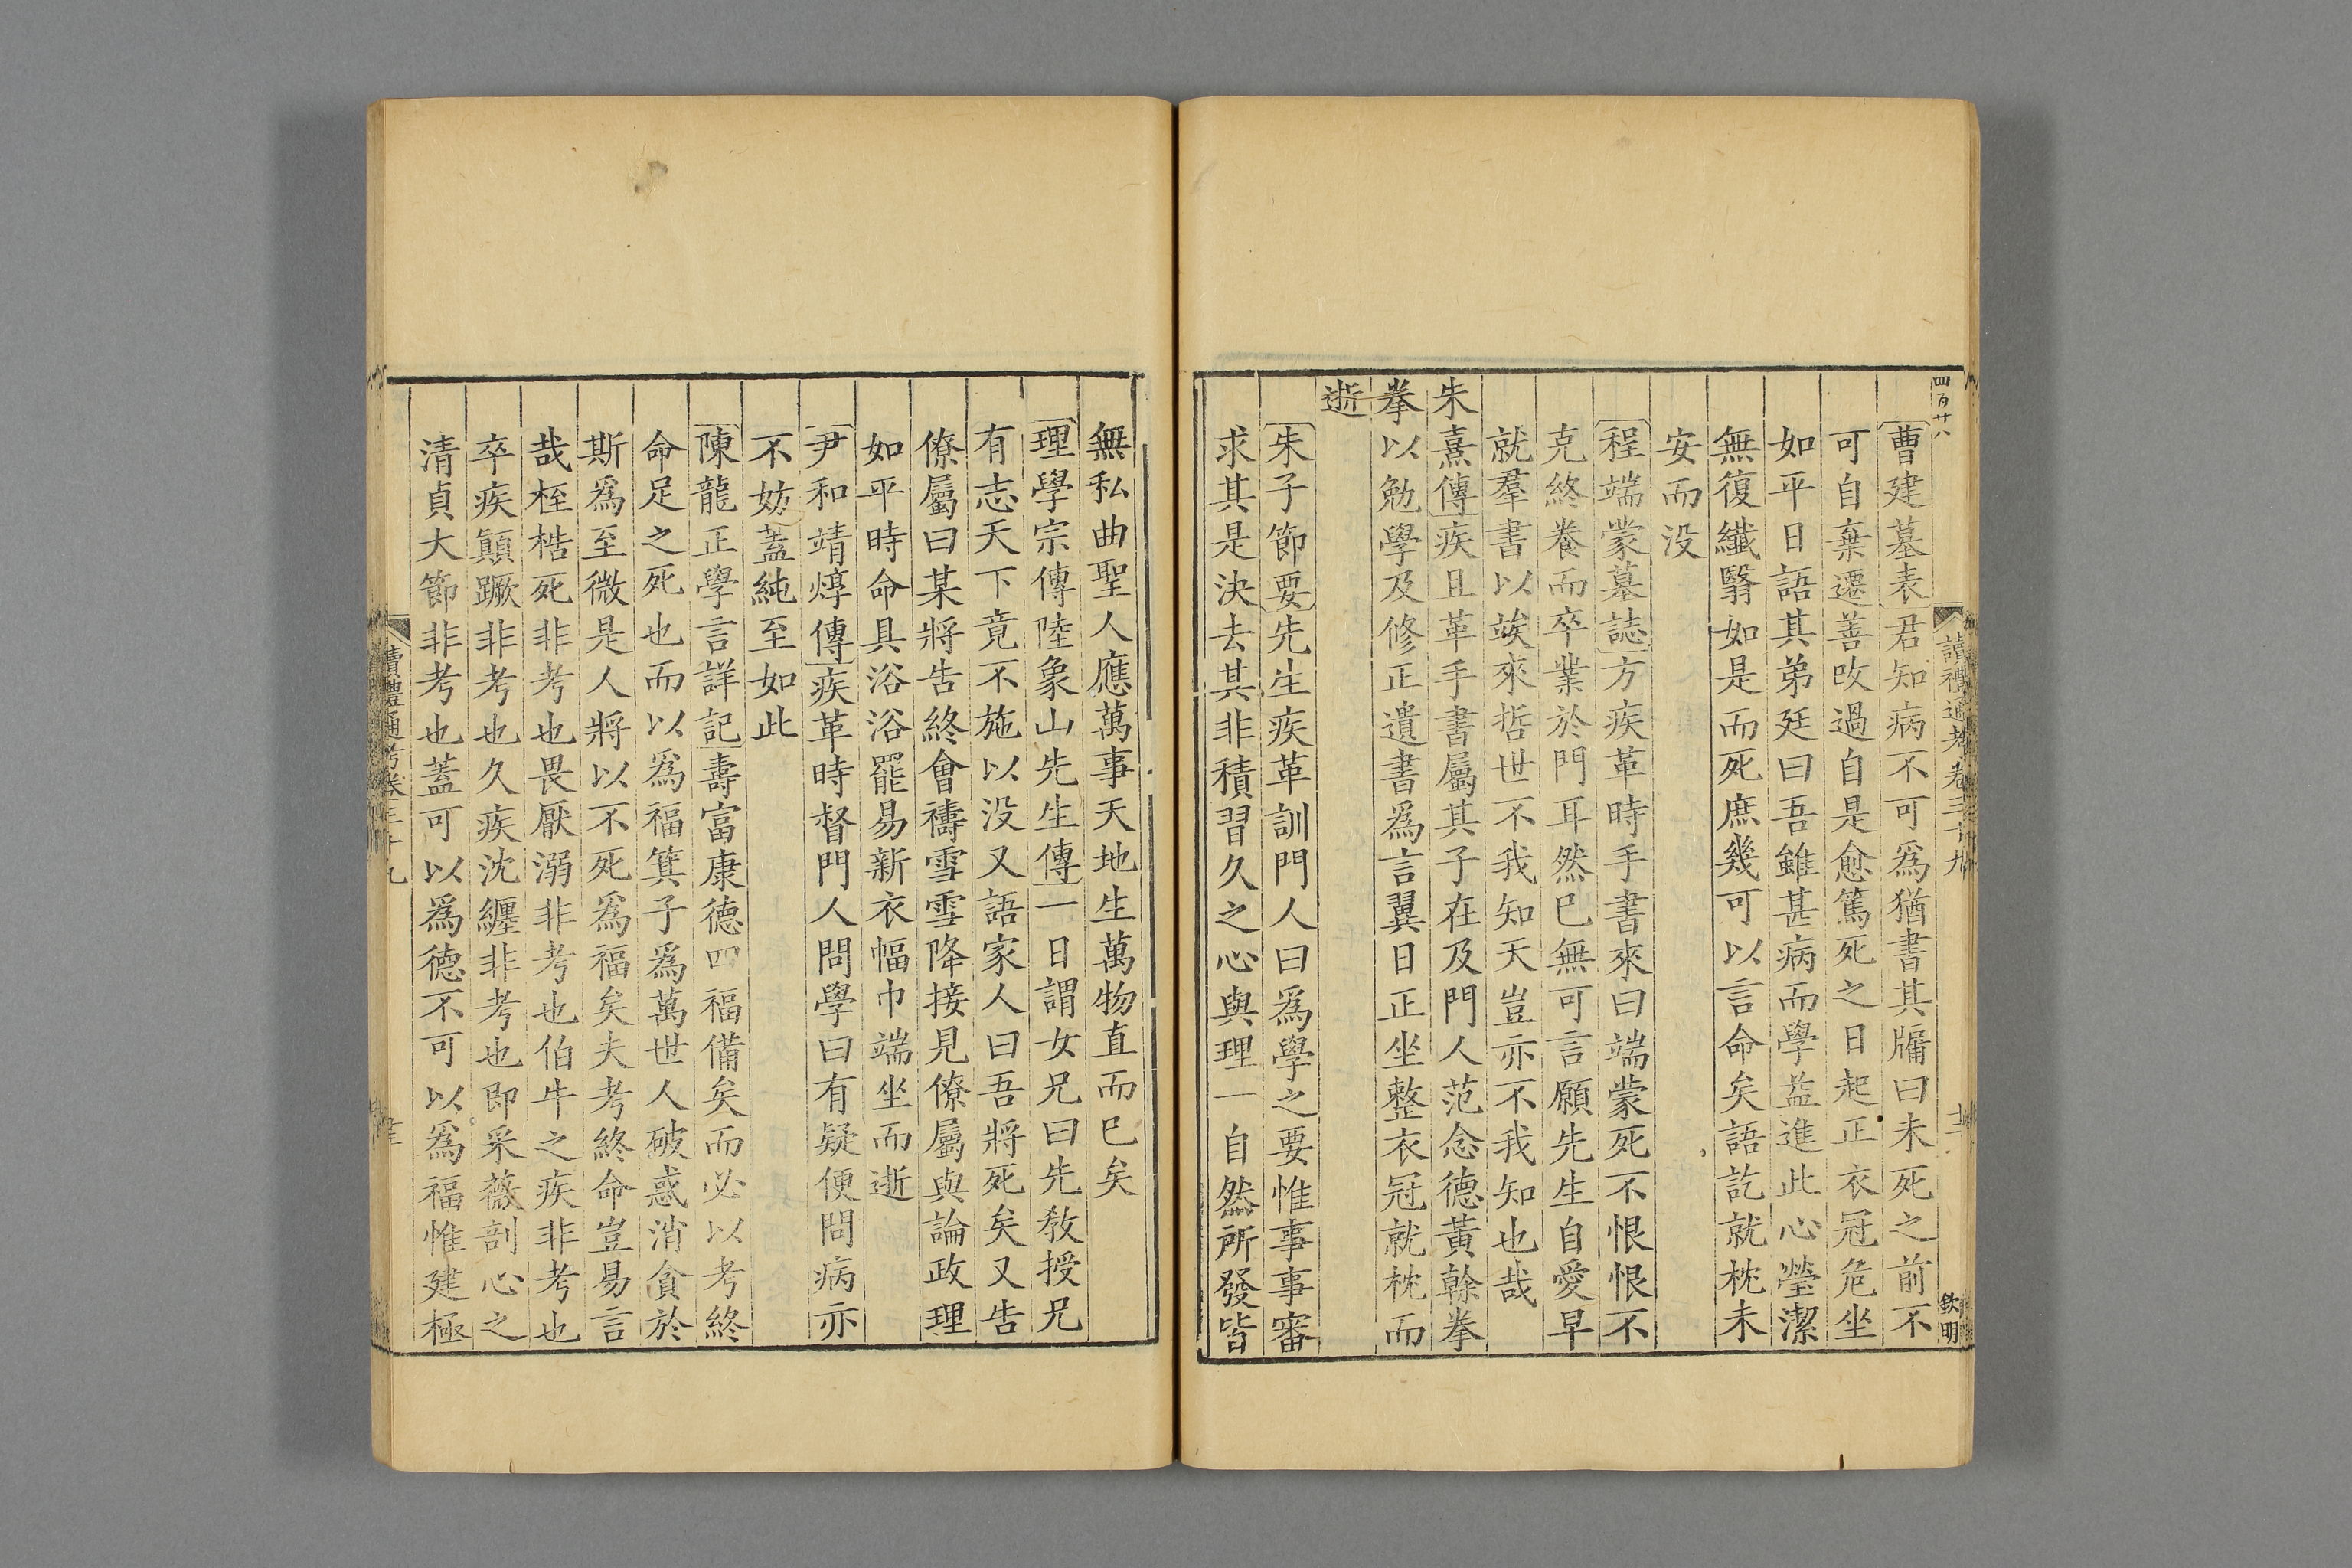 四百廿八
讀禮通考卷三十九
欽明
曹建墓表君知病不可爲猶書其牖曰未死之前不
可自棄遷善改過自是愈篤死之日起正衣冠危坐
如平日語其弟廷曰吾雖甚病而學益進此心瑩潔
無復纖翳如是而死庶幾可以言命矣語訖就枕未
安而没
程端蒙墓誌方疾革時手書來曰端蒙死不恨恨不
克終養而卒業於門耳然巳無可言願先生自愛早
就羣書以竢來哲世不我知天豈亦不我知也哉
朱熹傳疾且革手書屬其子在及門人范念德黃榦拳
拳以勉學及修正遺書爲言翼日正坐整衣冠就枕而
逝
朱子節要先生疾革訓門人曰爲學之要惟事事審
求其是決去其非積習久之心與理一自然所發皆
無私曲聖人應萬事天地生萬物直而巳矣
理學宗傳陸象山先生傳一日謂女兄曰先敎授兄
有志天下竟不施以没又語家人曰吾將死矣又告
僚屬曰某將告終會禱雪雪降接見僚屬與論政理
如平時命具浴浴罷易新衣幅巾端坐而逝
尹和靖焞傳疾革時督門人問學曰有疑便問病亦
不妨蓋純至如此
陳龍正學言詳記壽富康德四福備矣而必以考終
命足之死也而以爲福箕子爲萬世人破惑消貪於
斯爲至微是人將以不死爲福矣夫考終命豈易言
哉桎梏死非考也畏厭溺非考也伯牛之疾非考也
卒疾顚蹶非考也久疾沈纏非考也即采薇剖心之
清貞大節非考也蓋可以爲德不可以爲福惟建極
讀禮通考卷三十九